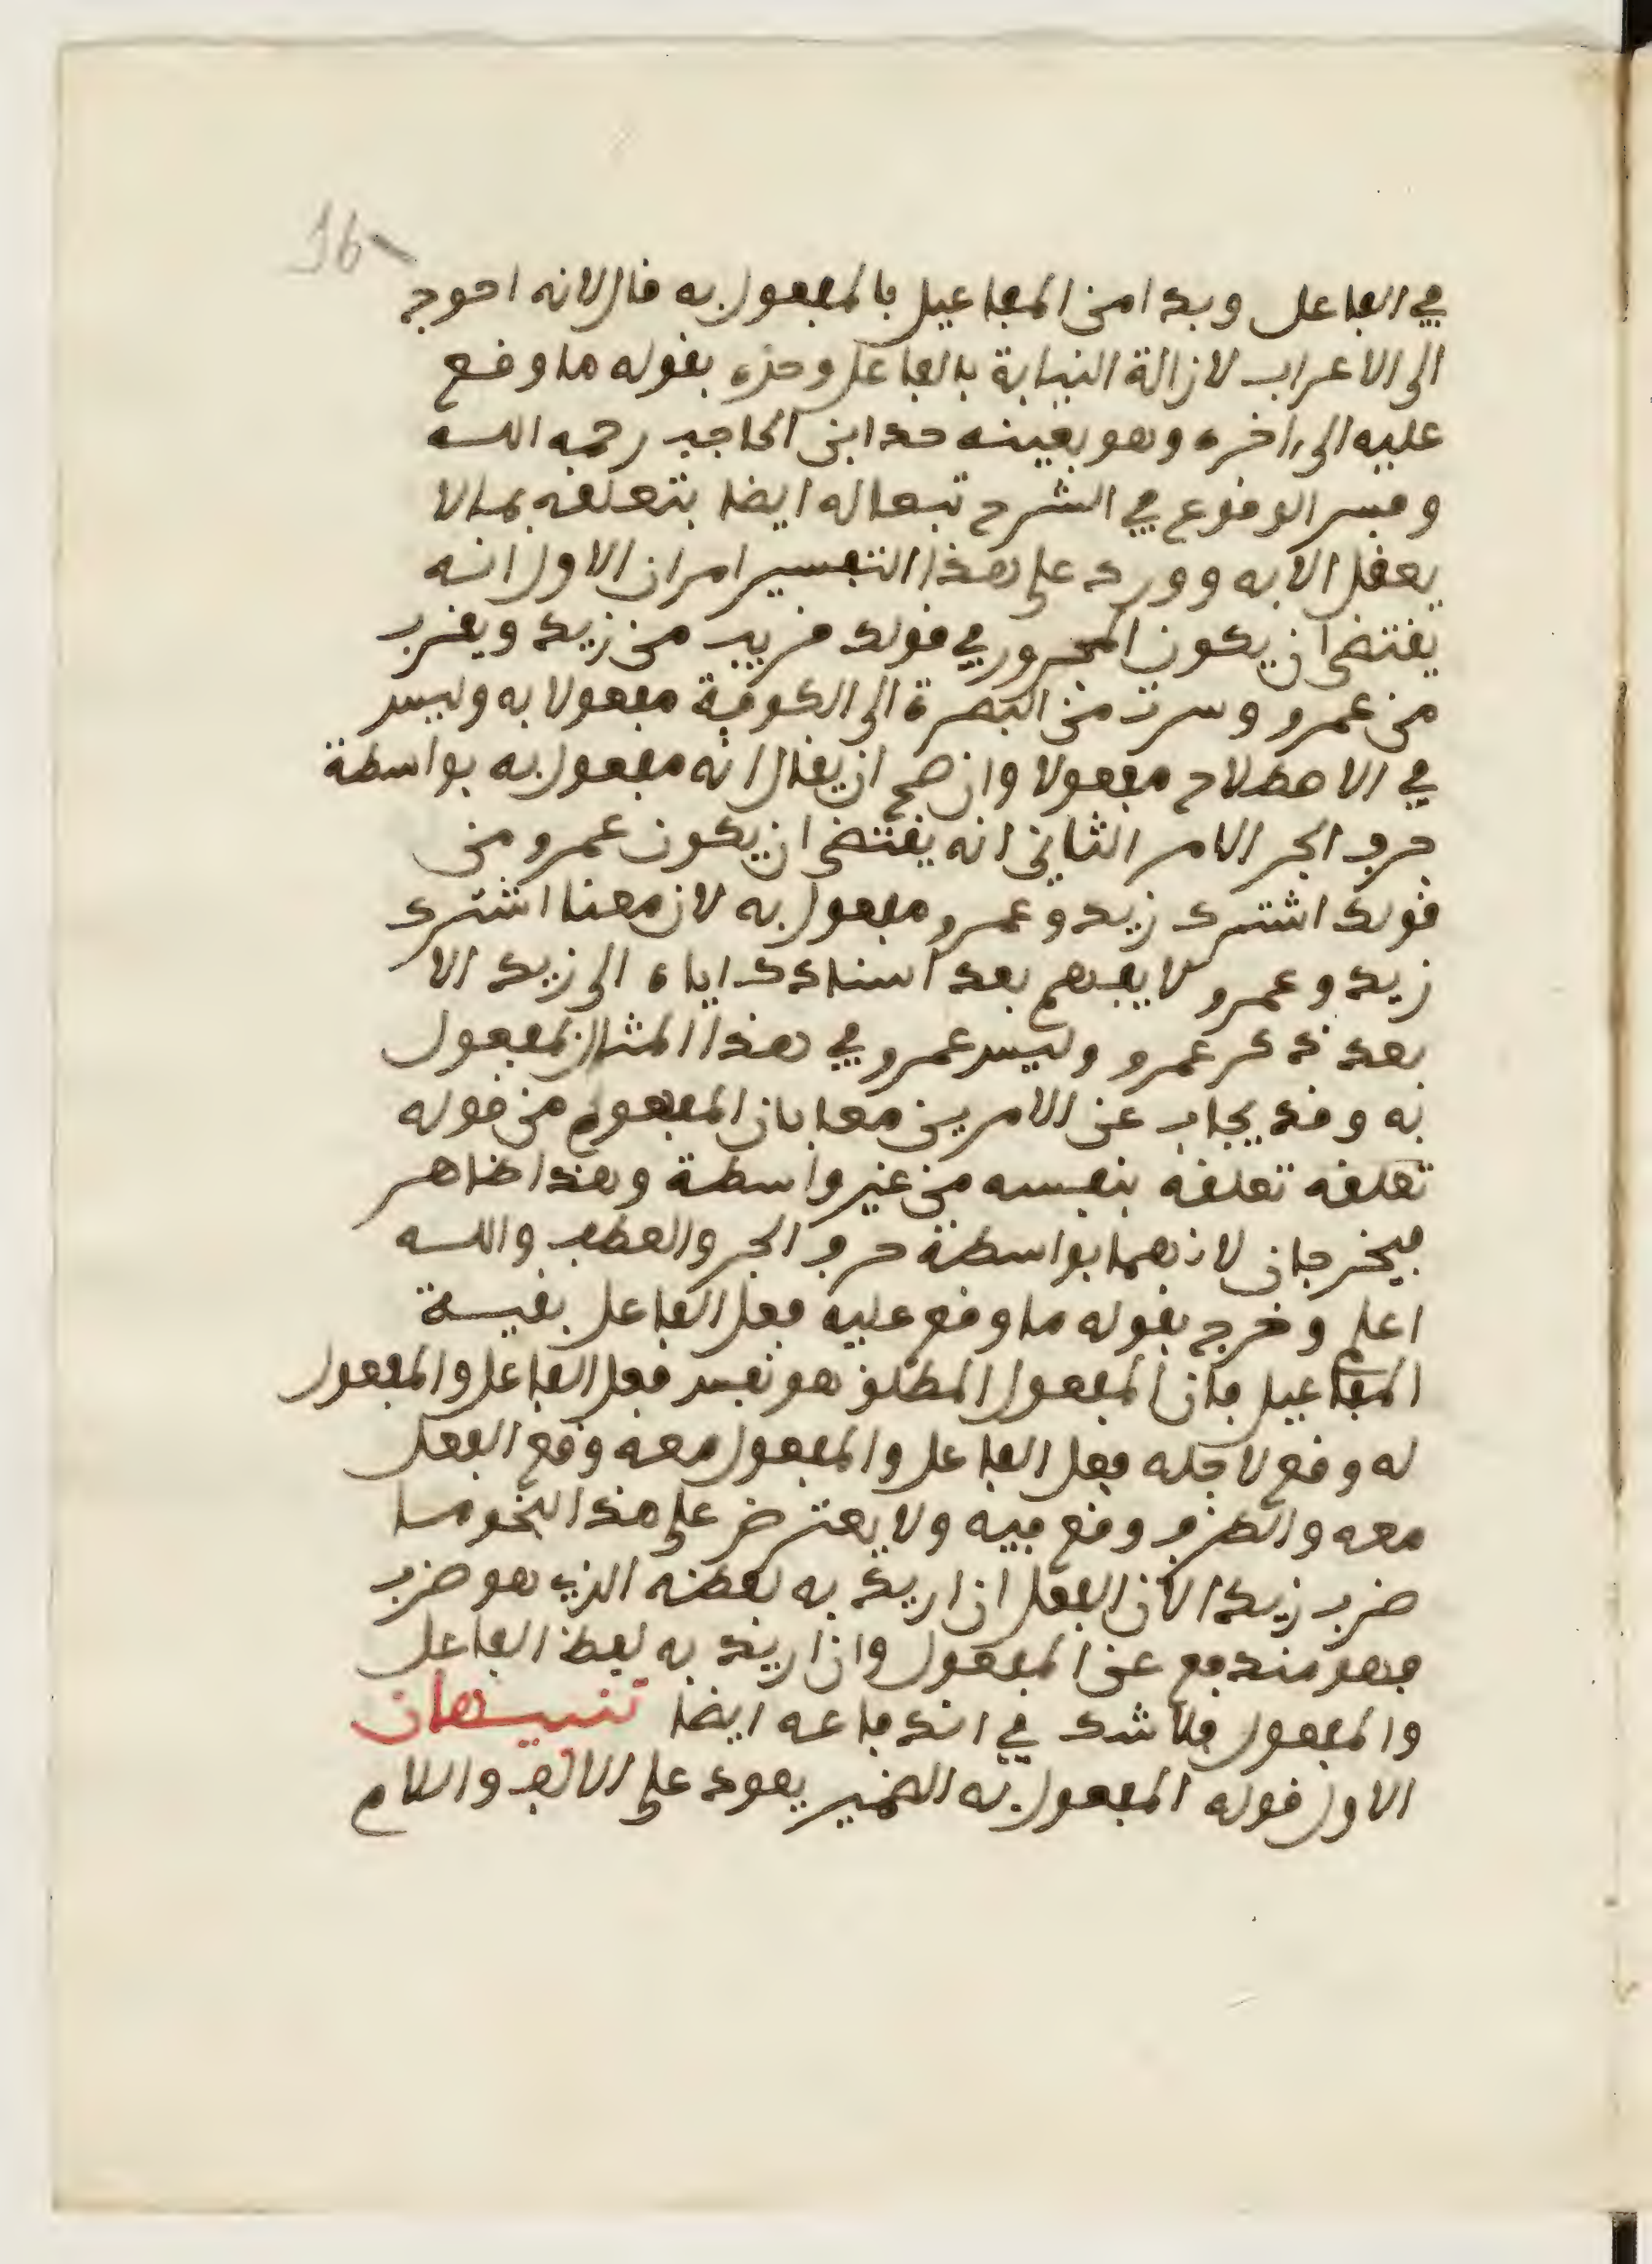 16
في الفاعل وبدا من المفاعيل بالمفعول به قال لانه احوج
الى الاعراب لازالة النيابة بالفاعل وحده بقوله ما وقع
عليه الى ءاخره وهو بعينه حد ابن الحاجب رحمه الله
وفسر الوقوع في الشرح تبعا له ايضا بتعلقه بما لا
يعقل الا به وورد على هذا التفسير امران الاول انه
يقتضى ان يكون المجرور في قولك قريب من زيد ويقرب
من عمرو وسرت من البصرة الى الكوفة مفعولا به وليس
في الاصطلاح مفعولا وان صح ان يقال انه مفعول به بواسطة
حرف الجر الامر الثاني انه يقتضى ان يكون عمرو من
قولك اشترك زيد وعمرو مفعول به لان معنا اشترك
زيد وعمرو لا يفهم بعد اسنادك اياه الى زيد الا
بعد ذكر عمرو وليس عمرو في هذا المثال بمفعول
به وقد يجاب عن الامرين معا بان المفهوم من قوله
تعلقه تعلقه بنفسه من غير واسطة وهذا ظاهر
فيخرجان لانهما بواسطة حرف الجر والعطف والله
اعلم وخرج بقوله ما وقع عليه فعل الفاعل بقيسة
المفاعيل فان المفعول المطلق هو نفس فعل الفاعل والمفعول
له وقع لاجله فعل الفاعل والمفعول معه وقع الفعل
معه والظرف وقع فيه ولا يعترض على هذا النحو ما
ضرب زيد الان الفعل ان اريد به لفظه الذي هو ضرب
فهو مندفع عن المفعول وان اريد به لفظ الفاعل
والمفعول فلا شك في اندفاعه ايضا تنبيهان
الاول قوله المفعول به الضمير يعود على الالف واللام